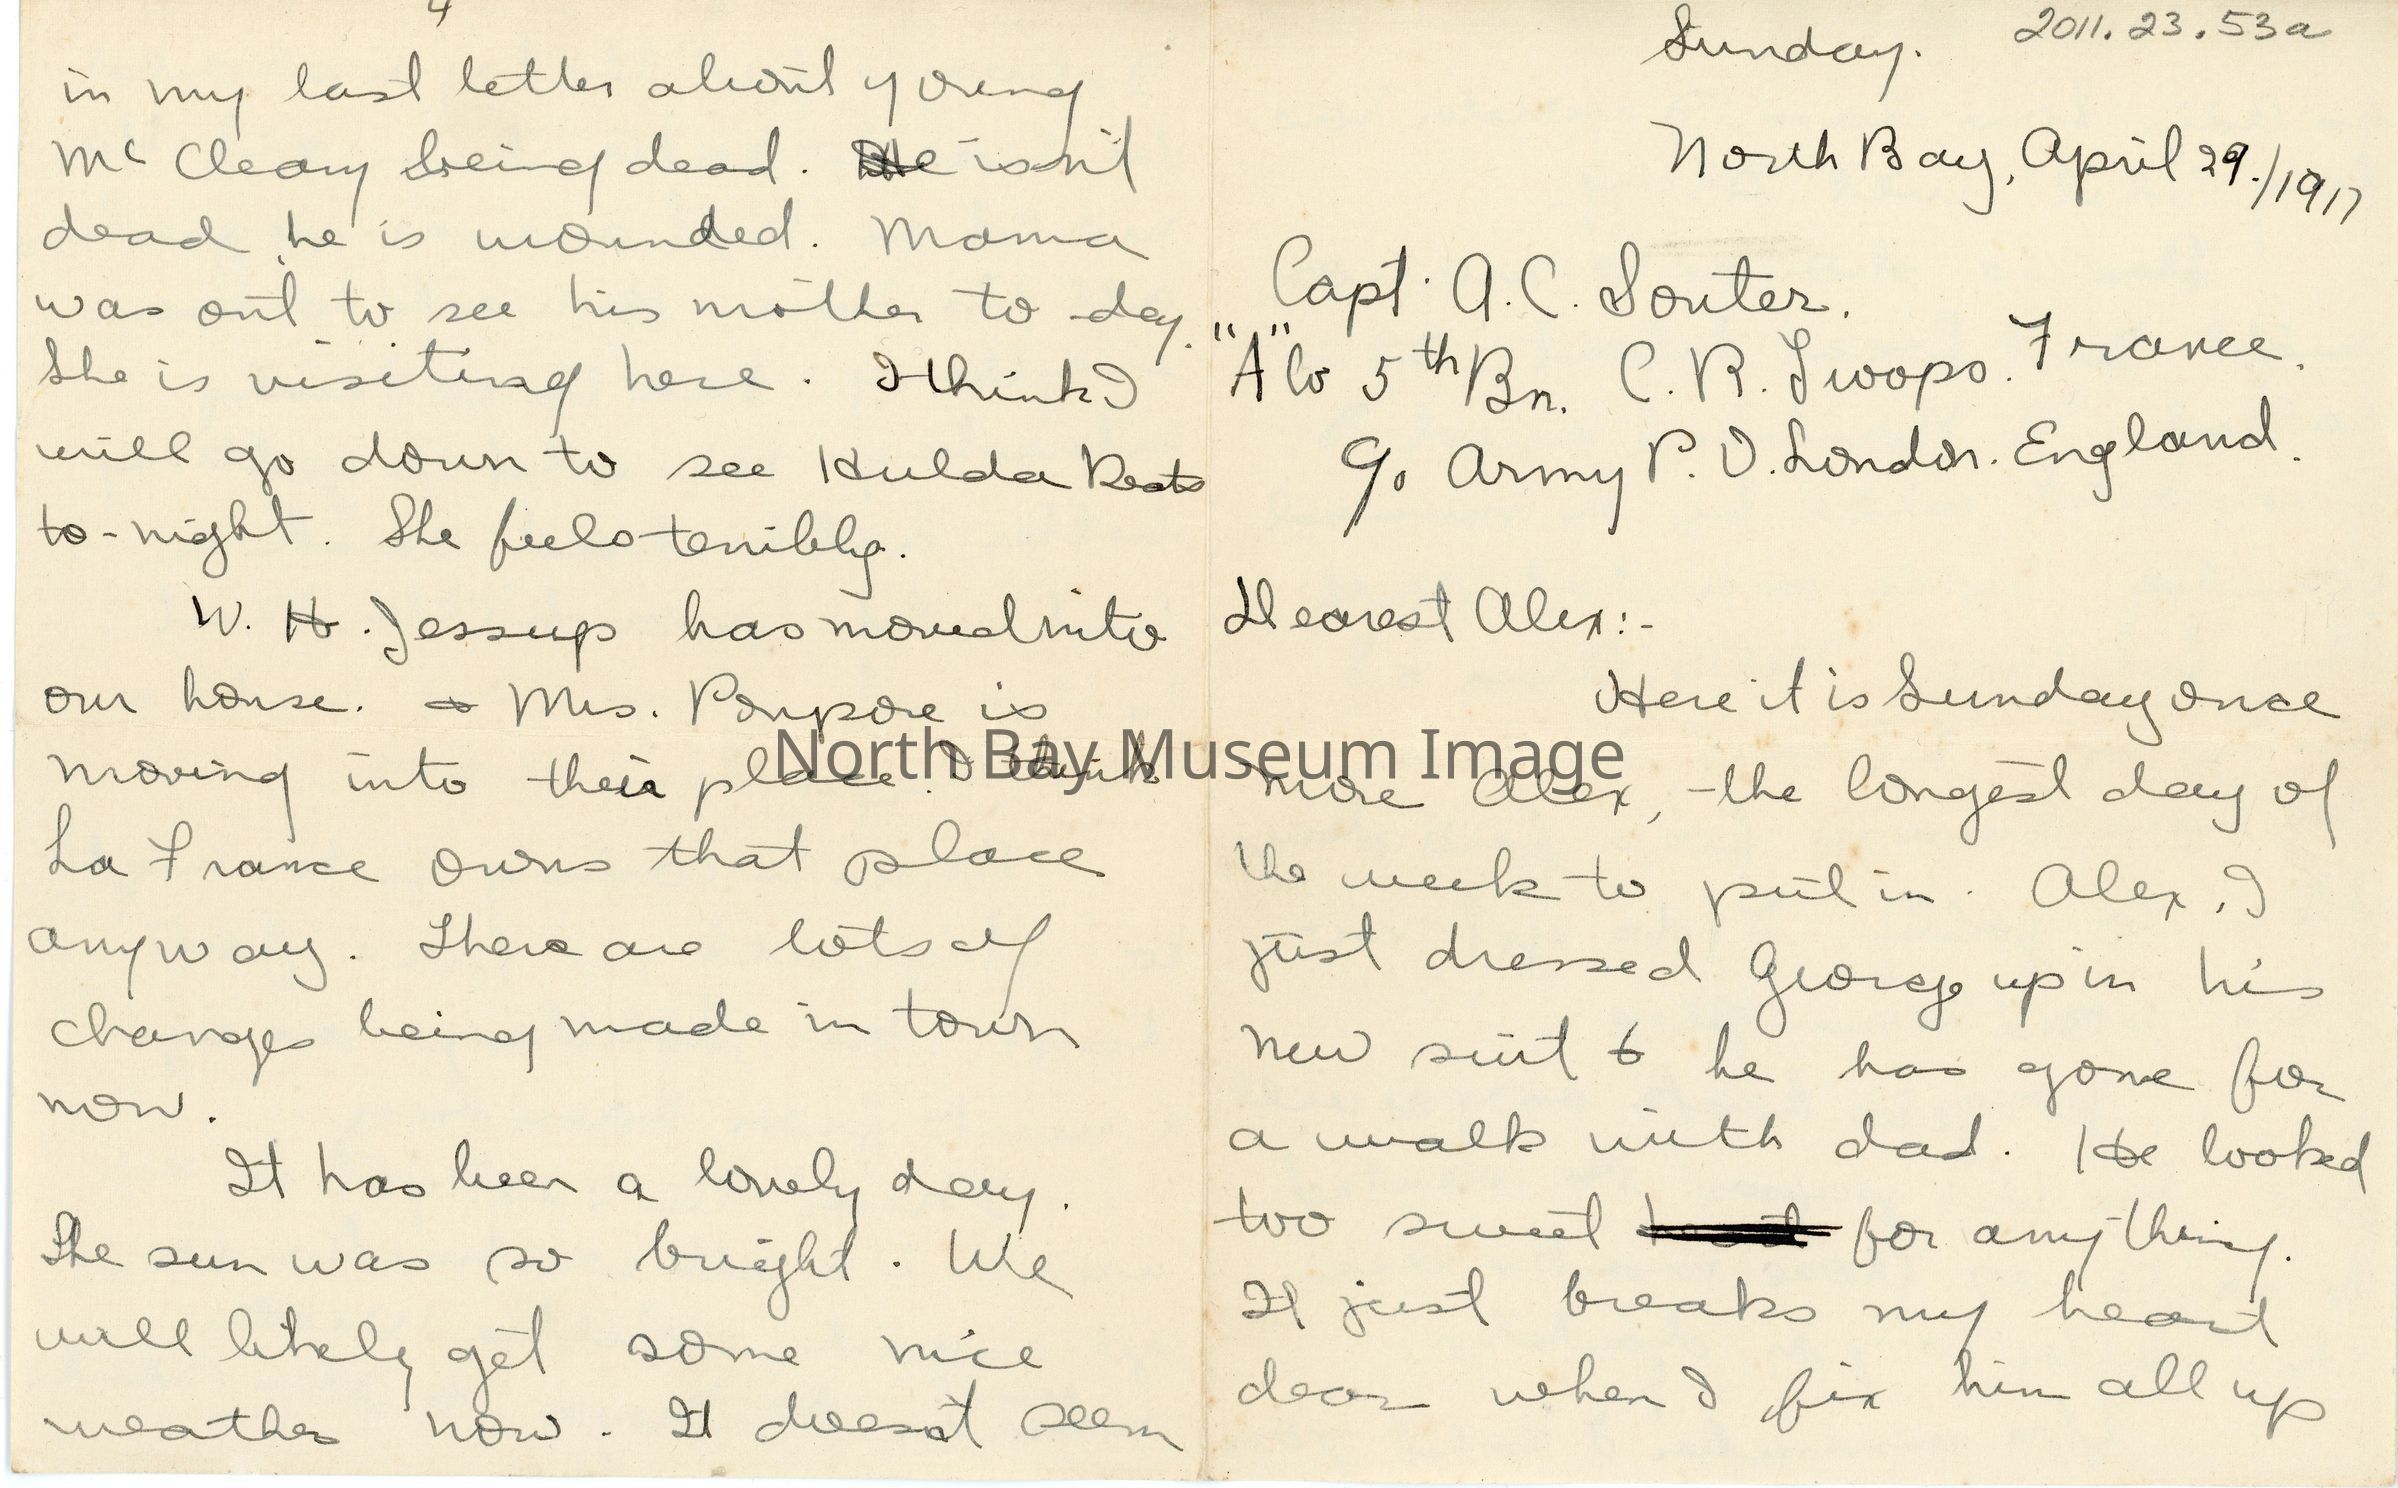 4
in my last letter about young
Mc Cleary being dead. He isn't
dead he is wounded. Mama
was out to see his mother to-day.
She is visiting here. I think I
will go down to see Hulda
to-night. She feels terribly.
W. H. Jessup has moved into
our house. & Mrs. Pompore is
moving into their place. I think
La France owns that place
anyway. There are lots of
changes being made in town
now.
It has been a lovely day.
The sun was so bright. We
will likely get some nice
weather now. It doesn't seem
2011.23.53a
Sunday.
North Bay, April 29./1917
Capt. A.C. Souter.
"A" Co 5th Bn. C. R. Troops. France.
c/o Army P. O. London. England.
Dearest Alex:-
Here it is Sunday once
more Alex, - the longest day of
the week to put in. Alex, I
just dressed George up in his
new suit & he has gone for
a walk with dad. He looked
too sweet for anything.
It just breaks my heart
dear when I fix him all up
North Bay Museum Image